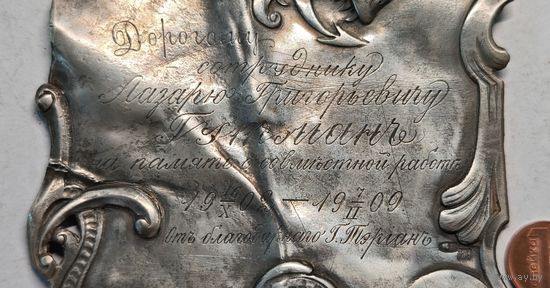 Дорогому
сотруднику
Лазарю Григорьевичу
Гутманъ
на память о совместной работѣ
19 19/X 02 — 19 7/II 09
отъ благодарнаго Г. Тяргань
www.ay.by